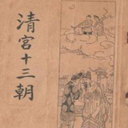 清宮十三朝